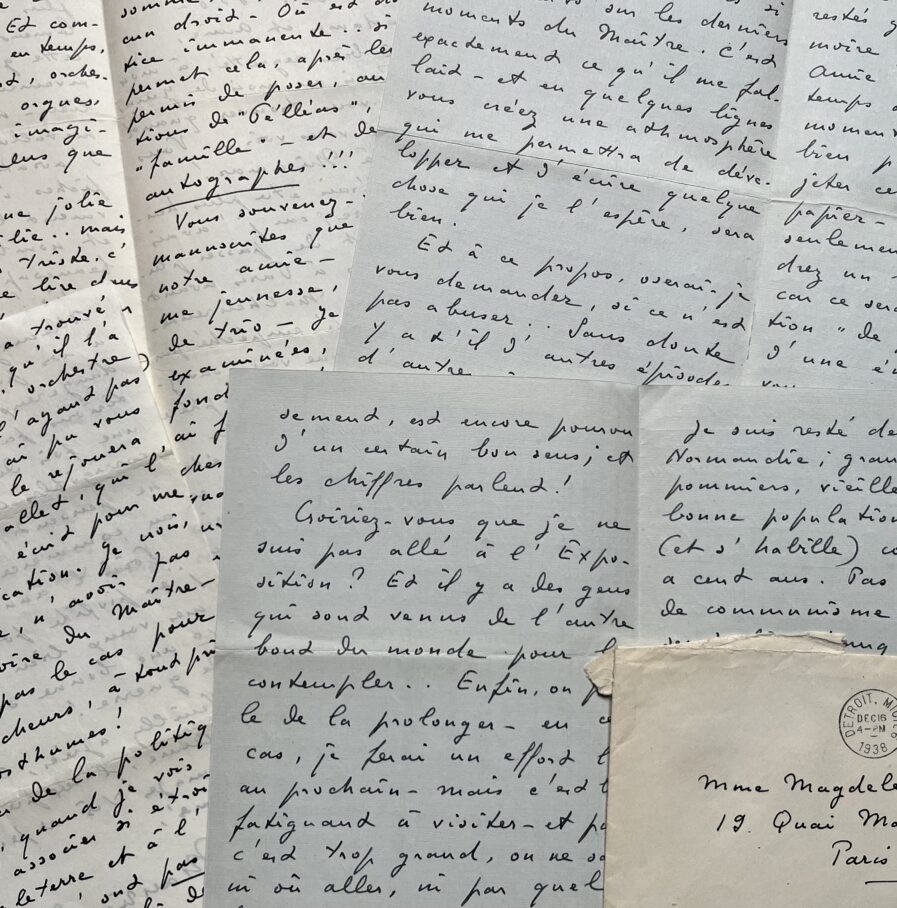 Et com-
en temps,
orches-
orgues,
imagi-
que
jolie
mais
triste. c'
lire dans
un droit - Où est
tice immanente.. si
permet cela, après les
permis de poser, au
tions de "Pélléas",
"famille" - et de
autographes !!!
Vous souvenez-
manuscrites que
notre amie -
ma jeunesse,
de trio - Je
examinées,
fond
sur les derniers
moments du Maître. C'est
exactement ce qu'il me fal-
lait - et en quelques lignes
vous créez une athmosphère
qui me permettra de déve-
lopper et d'écrire quelque
chose qui je l'espère, sera
bien.
Et à ce propos, oserai-je
vous demander, si ce n'est
pas abuser.. Sans doute
y a t'il d'autres épisodes
d'autre
restés
moire
Amie
temps
moment
bien p
jeter ce
papier-
seulemen
drez un
car ce sera
tion "de
d'une é
trouvé
qu'il l'a
orchestre
l'ayant pas)
ai pu vous
le rejouera
allet, qui l'ai
écrit pour me
cation. Je vois,
n'avoir pas
oire du Maître-
pas le cas pour
cheurs, à tout pri
osthumes!
de la politiq
quand je vois
associer si étroi
leterre et à l'
ont pas
sement, est encore pourvu
d'un certain bon sens; et
les chiffres parlent!
Croiriez-vous que je ne
suis pas allé à l'Expo-
sition? Et il y a des gens
qui sont venus de l'autre
bout du monde pour l
contempler.. Enfin, on p
le de la prolonger - en c
cas, je ferai un effort l
an prochain - mais c'est t
fatiguant à visiter - et pa
c'est trop grand, on ne sa
ni où aller, ni par quel
Je suis resté de
Normandie; gran
pommiers, vieille
bonne population
(et s'habille) co
a cent ans. Pas
de communisme
DETROIT, MICH.
DEC 16
4-PM
1938
Mme Magdele
19. Quai Ma
Paris